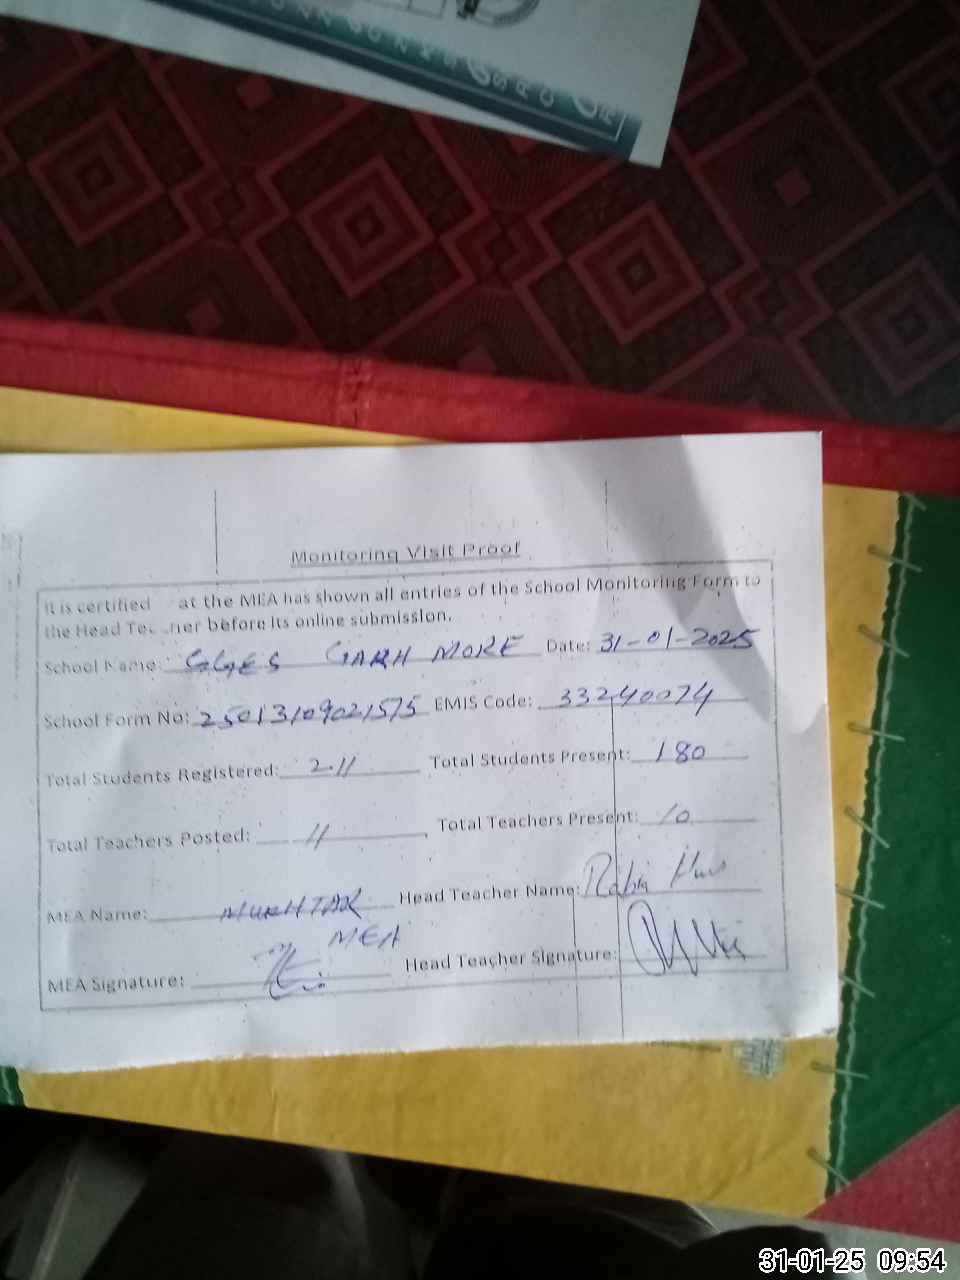 Monitoring Visit Proof
It is certified at the MEA has shown all entries of the School Monitoring Form to
the Head Teacher before its online submission.
School Name: GGES GARH MORE Date: 31-01-2025
School Form No: 25013109021575 EMIS Code: 33240074
Total Students Registered: 211 Total Students Present: 180
Total Teachers Posted: 11 Total Teachers Present: 10
MEA Name: MUKHTAR Head Teacher Name: Rabia
MEA
MEA Signature: Head Teacher Signature:
31-01-25 09:54